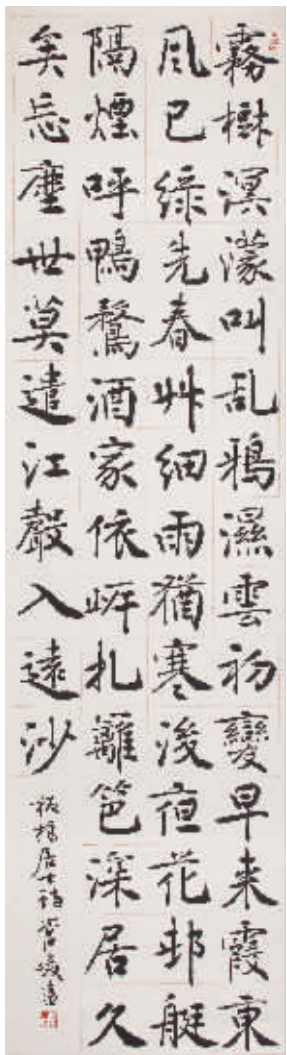 霧樹溟濛叫乱鴉濕雲初變早来霞東
風已綠先春艸細雨猶寒後夜花邨艇
隔煙呼鴨鶩酒家依岸扎籬笆深居久
矣忘塵世莫遣江聲入遠沙
板橋居士詩